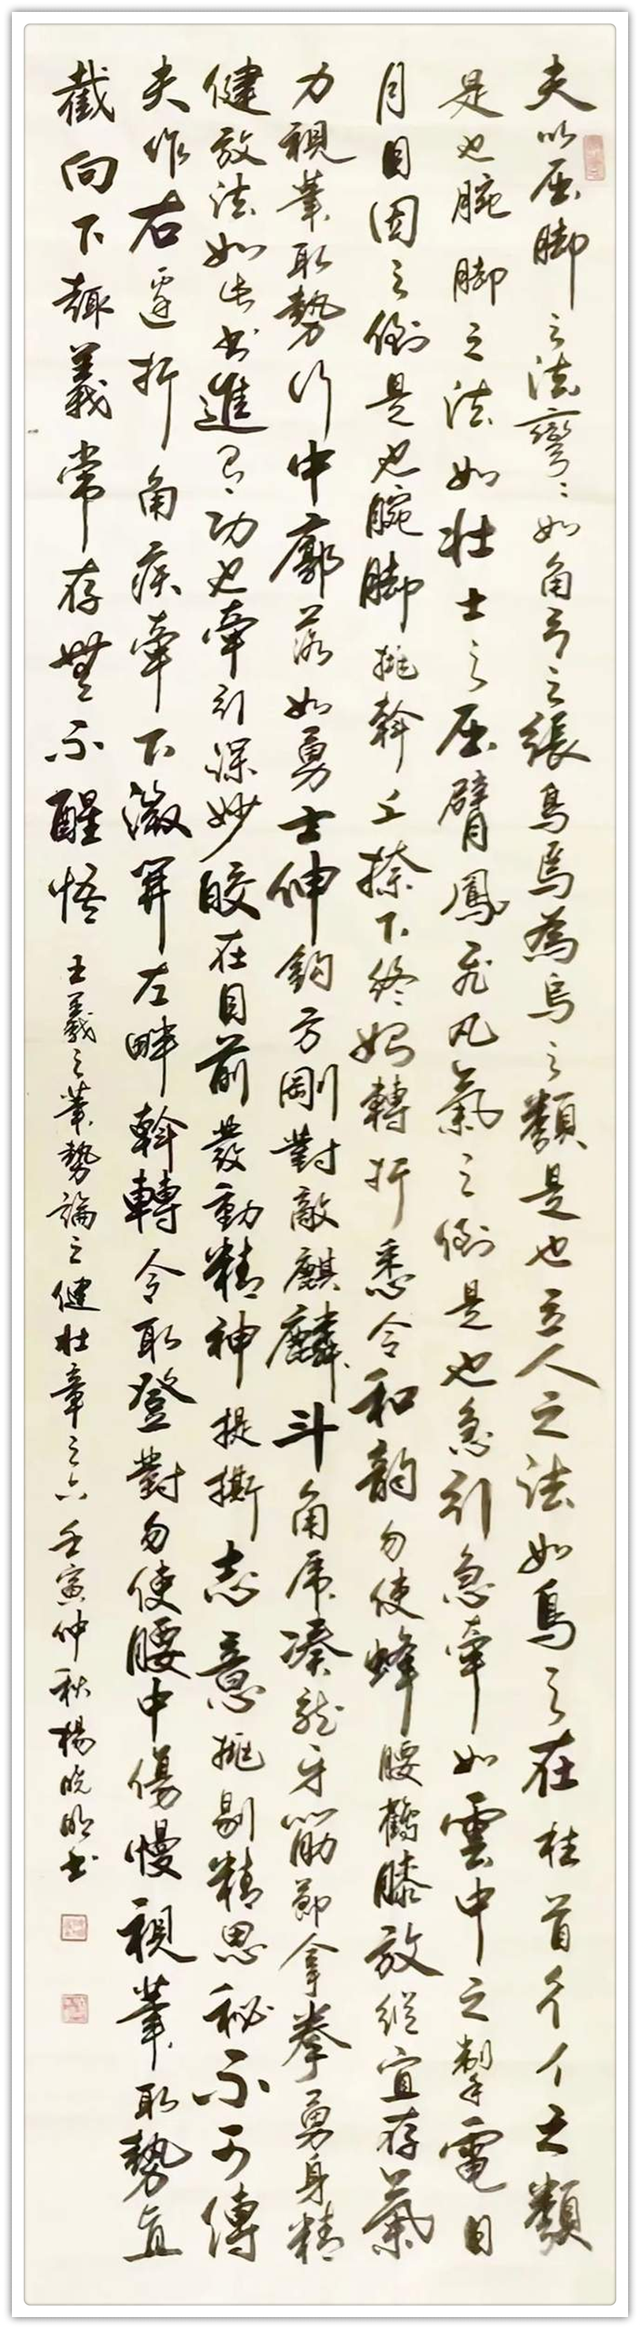 夫以屈脚之法彎彎如角弓之張鳥焉爲烏之類是也立人之法如鳥之在柱首彳亻之類
是也腕脚之法如壯士之屈臂鳳飛凡氣之例是也急引急牽如雲中之掣電日
月目因之例是也腕脚挑斡上捺下終始轉折悉令和韵勿使蜂腰鶴膝放縱宜存氣
力視筆取勢行中廓落如勇士伸鈎方剛對敵麒麟斗角虎湊龍牙筋節拿拳勇身精
健放法如此書進有功也牽引深妙皎在目前發動精神提撕志意挑剔精思秘不可傳
夫作右邊折角疾牽下微開左畔斡轉令取登對勿使腰中傷慢視筆取勢直
截向下趣義常存無不醒悟 王羲之筆勢論之健壯章之六 壬寅仲秋楊曉明書